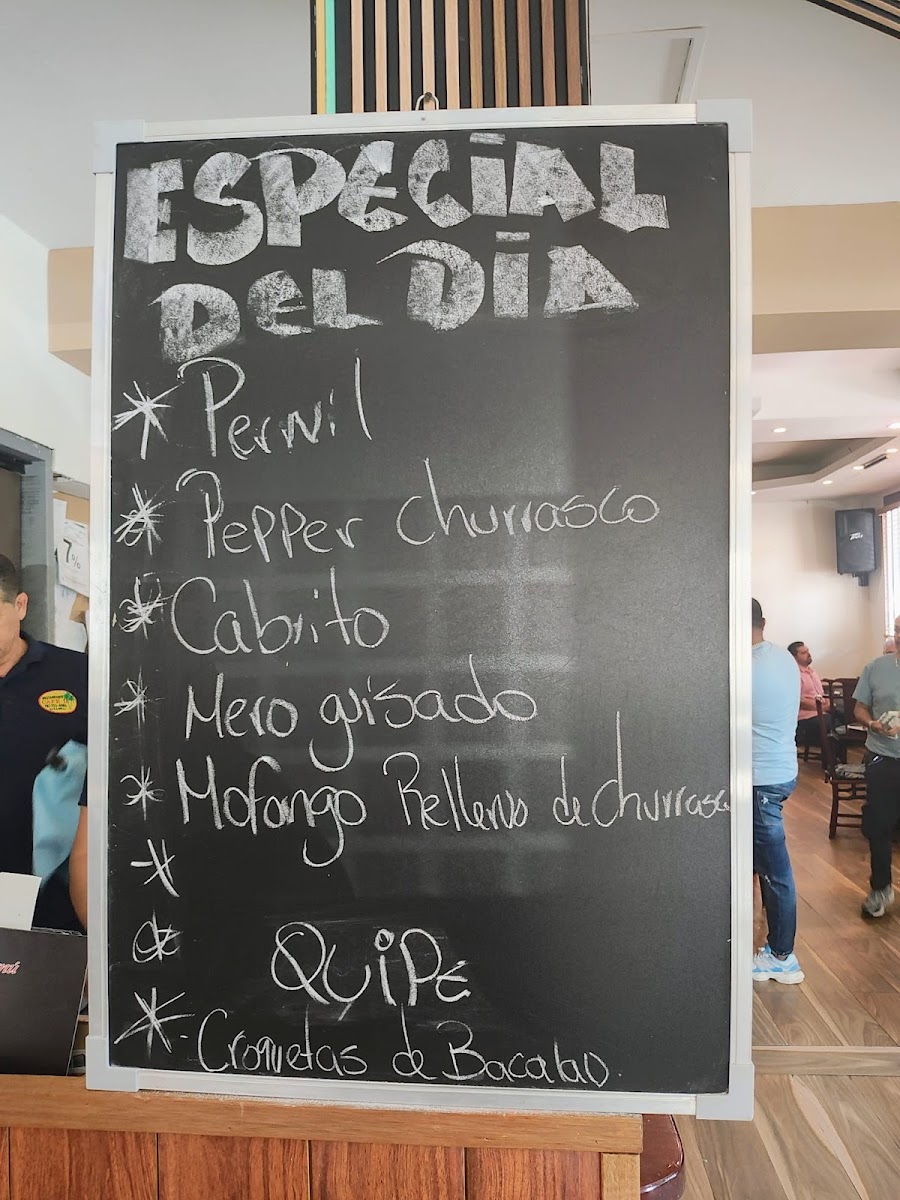 ESPECIAL
DEL DIA
* Pernil
* Pepper churrasco
* Cabrito
* Mero guisado
* Mofongo Relleno de churrasco
*
*
QUIPE
* - Croquetas de Bacalao
7%